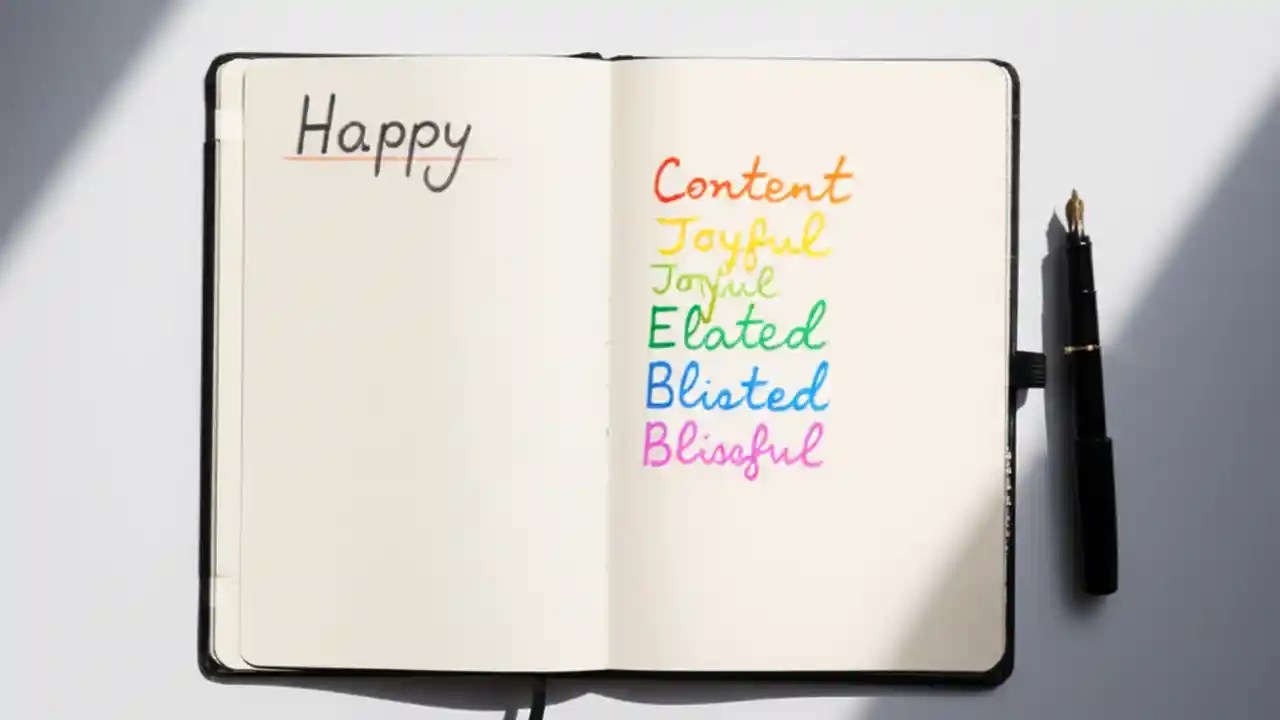 Happy
Content
Joyful
Joyful
Elated
Blisted
Blissful